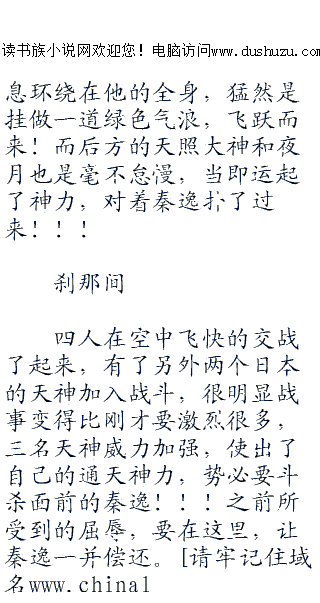 读书族小说网欢迎您！电脑访问www.dushuzu.com
息环绕在他的全身，猛然是
挂做一道绿色气浪，飞跃而
来！而后方的天照大神和夜
月也是毫不怠慢，当即运起
了神力，对着秦逸扑了过
来！！！
刹那间
四人在空中飞快的交战
了起来，有了另外两个日本
的天神加入战斗，很明显战
事变得比刚才要激烈很多，
三名天神威力加强，使出了
自己的通天神力，势必要斗
杀面前的秦逸！！！之前所
受到的屈辱，要在这里，让
秦逸一并偿还。[请牢记住域
名www.china1